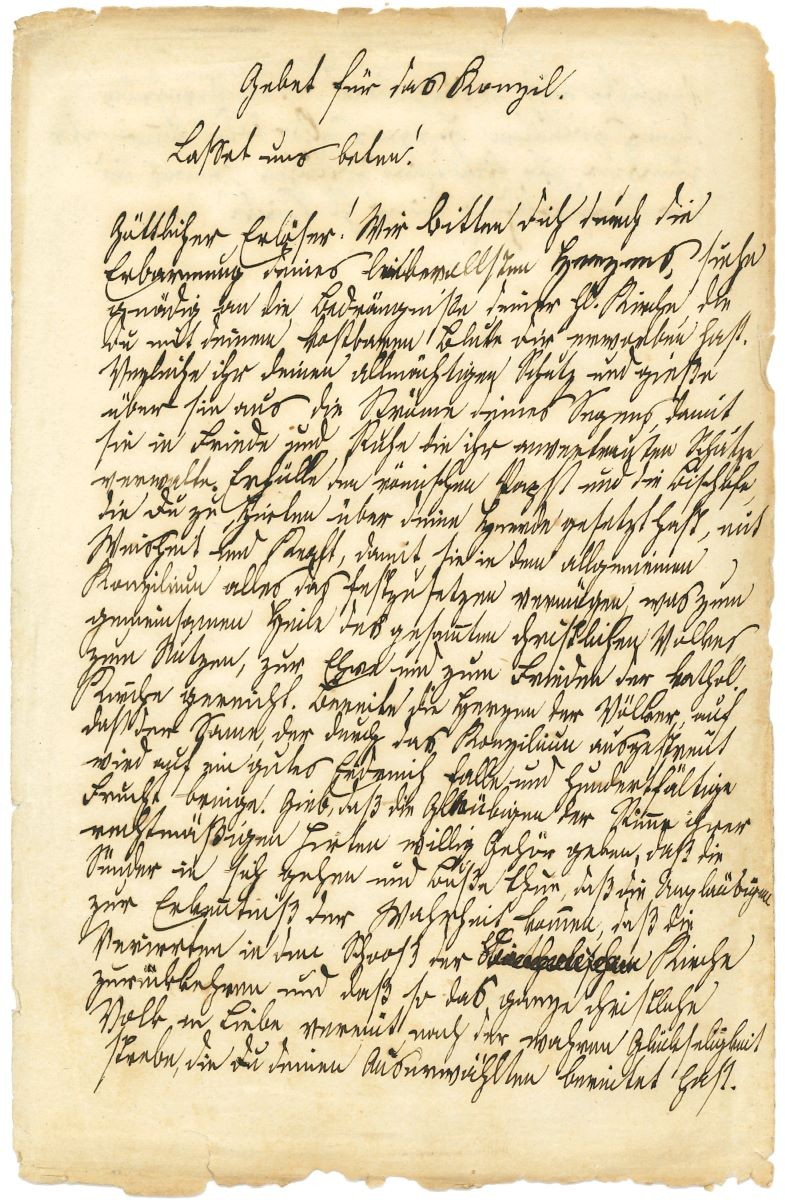 Gebet für das Konzil.
Lasset uns beten!
Göttlicher Erlöser! Wir bitten dich durch die
Erbarmung deines liebevollsten Herzens, siehe
gnädig an die Bedrängnisse deiner hl. Kirche, die
du mit deinem kostbaren Blute dir erworben hast.
Verleihe ihr deinen allmächtigen Schutz und gieße
über sie aus die Ströme deines Segens, damit
sie in Friede und Ruhe die ihr anvertrauten Schätze
verwalte. Erfülle den römischen Papst und die Bischöfe,
die du zu Hirten über deine Heerde gesetzt hast, mit
Weisheit und Kraft, damit sie in dem allgemeinen
Konzilium alles das festzusetzen vermögen, was zum
gemeinsamen Heile des gesamten christlichen Volkes
zum Nutzen, zur Ehre und zum Frieden der kathol.
Kirche gereicht. Bereite die Herzen der Völker, auf
daß der Same, der durch das Konzilium ausgestreut
wird auf ein gutes Erdreich falle und hundertfältige
Frucht bringe. Gieb, daß die Gläubigen der Stimme ihrer
rechtmäßigen Hirten willig Gehör geben, daß die
Sünder in sich gehen und Buße thun, daß die Ungläubigen
zur Erkenntniß der Wahrheit kommen, daß die
Verirrten in den Schooß der Kirche
zurückkehren und daß so das ganze christliche
Volk in Liebe vereint nach der wahren Glückseligkeit
strebe, die du deinen Auserwählten bereitet hast.